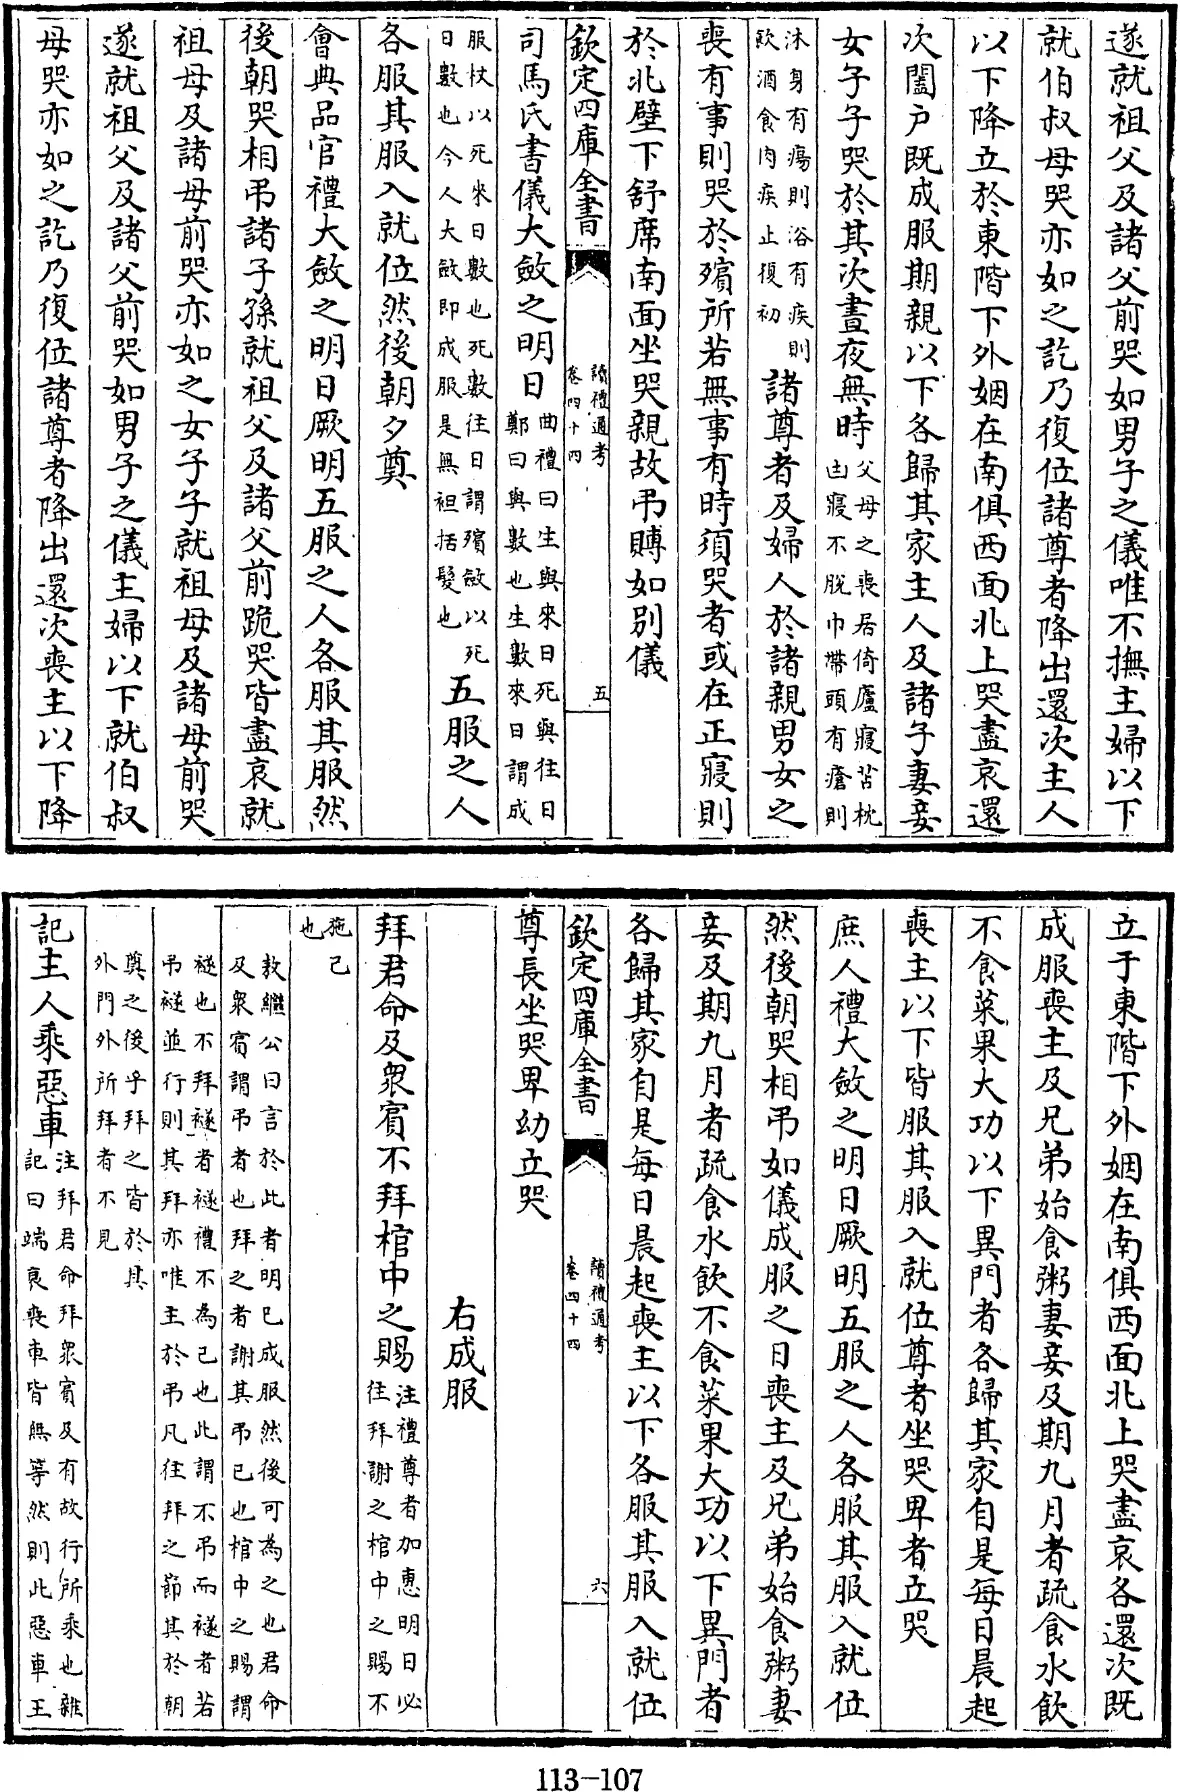 遂就祖父及諸父前哭如男子之儀唯不撫主婦以下
就伯叔母哭亦如之訖乃復位諸尊者降出還次主人
以下降立於東階下外姻在南俱西面北上哭盡哀還
次闔户既成服期親以下各歸其家主人及諸子妻妾
女子子哭於其次晝夜無時父母之喪居倚廬寢苫枕
凷寢不脫巾帶頭有瘡則
沐身有瘍則浴有疾則
飲酒食肉疾止復初
諸尊者及婦人於諸親男女之
喪有事則哭於殯所若無事有時須哭者或在正寢則
於北壁下舒席南面坐哭親故弔賻如別儀
欽定四庫全書
讀禮通考
卷四十四
五
司馬氏書儀大斂之明日曲禮曰生與來日死與往日
鄭曰與數也生數來日謂成
服杖以死來日數也死數往日謂殯斂以死
日數也今人大斂即成服是無袒括髮也
五服之人
各服其服入就位然後朝夕奠
會典品官禮大斂之明日厥明五服之人各服其服然
後朝哭相弔諸子孫就祖父及諸父前跪哭皆盡哀就
祖母及諸母前哭亦如之女子子就祖母及諸母前哭
遂就祖父及諸父前哭如男子之儀主婦以下就伯叔
母哭亦如之訖乃復位諸尊者降出還次喪主以下降
立于東階下外姻在南俱西面北上哭盡哀各還次既
成服喪主及兄弟始食粥妻妾及期九月者疏食水飲
不食菜果大功以下異門者各歸其家自是每日晨起
喪主以下皆服其服入就位尊者坐哭卑者立哭
庶人禮大斂之明日厥明五服之人各服其服入就位
然後朝哭相弔如儀成服之日喪主及兄弟始食粥妻
妾及期九月者疏食水飲不食菜果大功以下異門者
各歸其家自是每日晨起喪主以下各服其服入就位
欽定四庫全書
讀禮通考
卷四十四
六
尊長坐哭卑幼立哭
右成服
拜君命及衆賓不拜棺中之賜注禮尊者加惠明日必
往拜謝之棺中之賜不
施己
也
敖繼公曰言於此者明已成服然後可為之也君命
及衆賓謂弔者也拜之者謝其弔已也棺中之賜謂
襚也不拜襚者襚禮不為己也此謂不弔而襚者若
弔襚並行則其拜亦唯主於弔凡往拜之節其於朝
奠之後乎拜之皆於其
外門外所拜者不見
記主人乘惡車注拜君命拜衆賓及有故行所乘也雜
記曰端衰喪車皆無等然則此惡車王
113-107